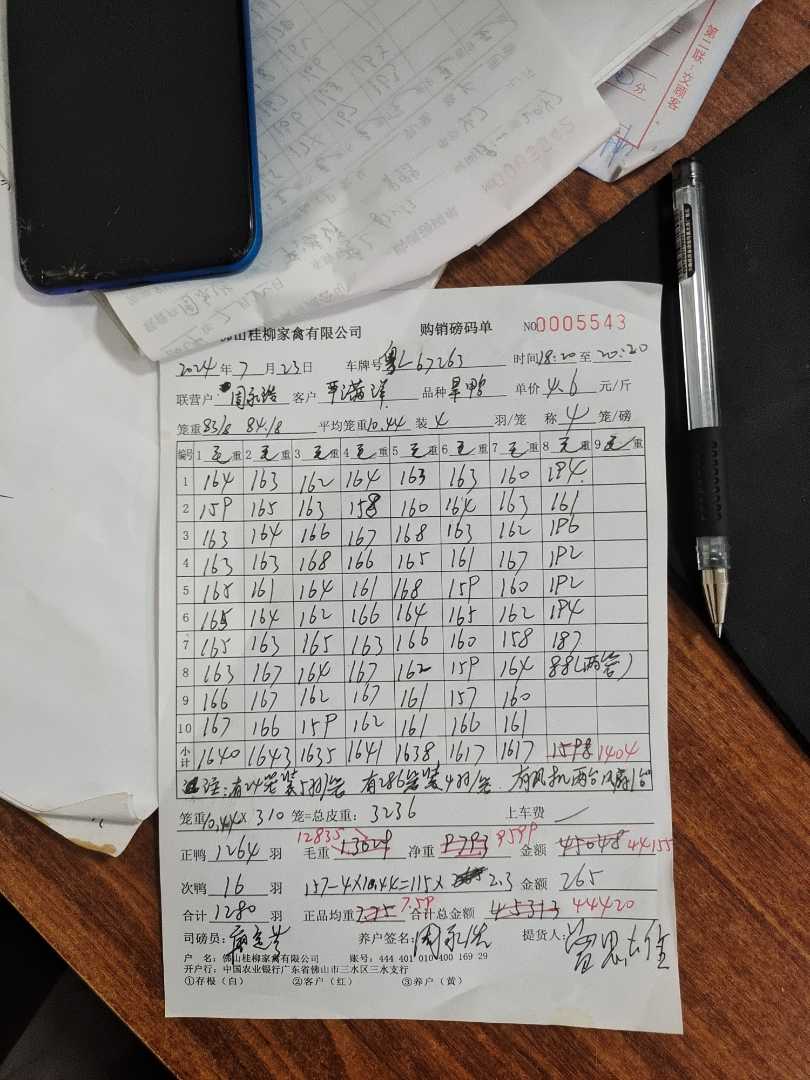 第二联:交顾客
分
佛山桂柳家禽有限公司 购销磅码单 NO0005543
2024年7月23日 车牌号粤L67263 时间18:20至20:20
联营户 周永浩 客户 严满洋 品种 旱鸭 单价 4.6 元/斤
笼重 83/8 84/8 平均笼重10.44 装4 羽/笼 称4 笼/磅
编号 1毛重 2毛重 3毛重 4毛重 5毛重 6毛重 7毛重 8毛重 9毛重
1 164 163 162 164 163 163 160 184
2 159 165 163 158 160 164 163 161
3 163 164 166 167 168 163 162 186
4 163 163 168 166 165 161 167 182
5 165 161 164 161 168 159 160 182
6 165 164 162 166 164 165 162 184
7 165 163 165 163 166 160 158 187
8 163 167 164 167 162 159 164 88(两笼)
9 166 167 162 167 161 157 160
10 167 166 159 162 161 166 161
小计 1640 1643 1635 1641 1638 1617 1617 1598 1404
备注:有24笼装5羽/笼 有286笼装4羽/笼
笼重10.44×310笼=总皮重:3236 上车费
正鸭1264羽 毛重13029 12835 净重9793 9599 金额45048 44155
次鸭16羽 157-4×10.44=115× 2.3 金额265
合计1280羽 正品均重7.75 7.59 合计总金额45313 44420
司磅员: 养户签名: 提货人:
户 名:佛山桂柳家禽有限公司 账号:444 401 010 400 169 29
开户行:中国农业银行广东省佛山市三水区三水支行
①存根(白) ②客户(红) ③养户(黄)